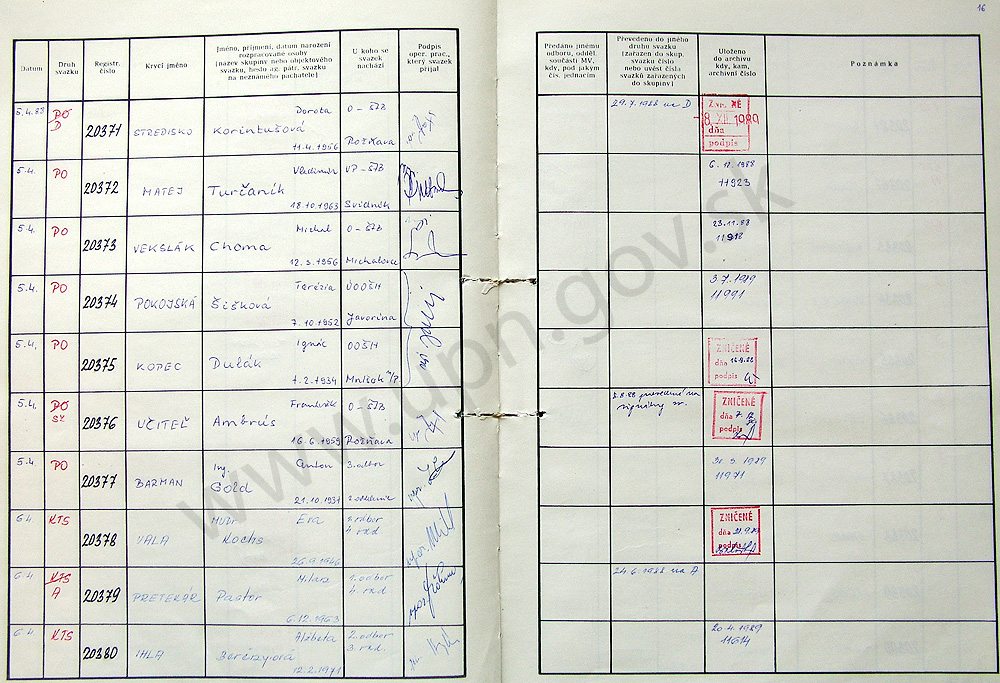 16
Datum
Druh
svazku
Registr.
číslo
Krycí jméno
Jméno, příjmení, datum narození
rozpracované osoby
(název skupiny nebo objektového
svazku, heslo ag. pátr. svazku
na neznámého pachatele)
U koho se
svazek
nachází
Podpis
oper. prac.,
který svazek
přijal
Předáno jinému
odboru, odděl.
součásti MV,
kdy, pod jakým
čís. jednacím
Převedeno do jiného
druhu svazku
(zařazen do skup.
svazku číslo
nebo uvést čísla
svazků zařazených
do skupiny)
Uloženo
do archívu
kdy, kam,
archívní číslo
Poznámka
5.4.88 PO D 20371 STREDISKO Dorota Korintušová 11.4.1956 O-ŠTB Rožňava
29.7.1988 na D
8 XII. 1989
dňa
podpis
5.4. PO 20372 MATEJ Vladimír Turčaník 18.10.1963 VP-ŠTB Svidník
6.12.1988
11923
5.4. PO 20373 VEKSLÁK Michal Choma 12.3.1956 O-ŠTB Michalovce
23.11.88
11918
5.4. PO 20374 POKOJSKÁ Terézia Šišková 7.10.1952 Javorina
3.7.1989
11991
5.4. PO 20375 KOPEC Ignác Dulák 1.2.1934 OOŠH Mníšek n/P
ZNIČENÉ
dňa
podpis
5.4. PO 20376 UČITEĽ František Ambrús 16.6.1959 O-ŠTB Rožňava
ZNIČENÉ
dňa
podpis
5.4. PO 20377 BARMAN Ing. Anton Gold 21.10.1931 3.odbor
31.3.1989
11971
6.4 KTS 20378 VALA MUDr Eva Kochs 26.9.1946
ZNIČENÉ
dňa
podpis
6.4 KTS A 20379 PRETEKÁR Milan Pastor 6.12.1963 1.odbor
24.6.1988 na A
6.4 KTS 20380 IHLA Alžbeta 12.2.1971 2.odbor
20.4.1989
www.upn.gov.sk